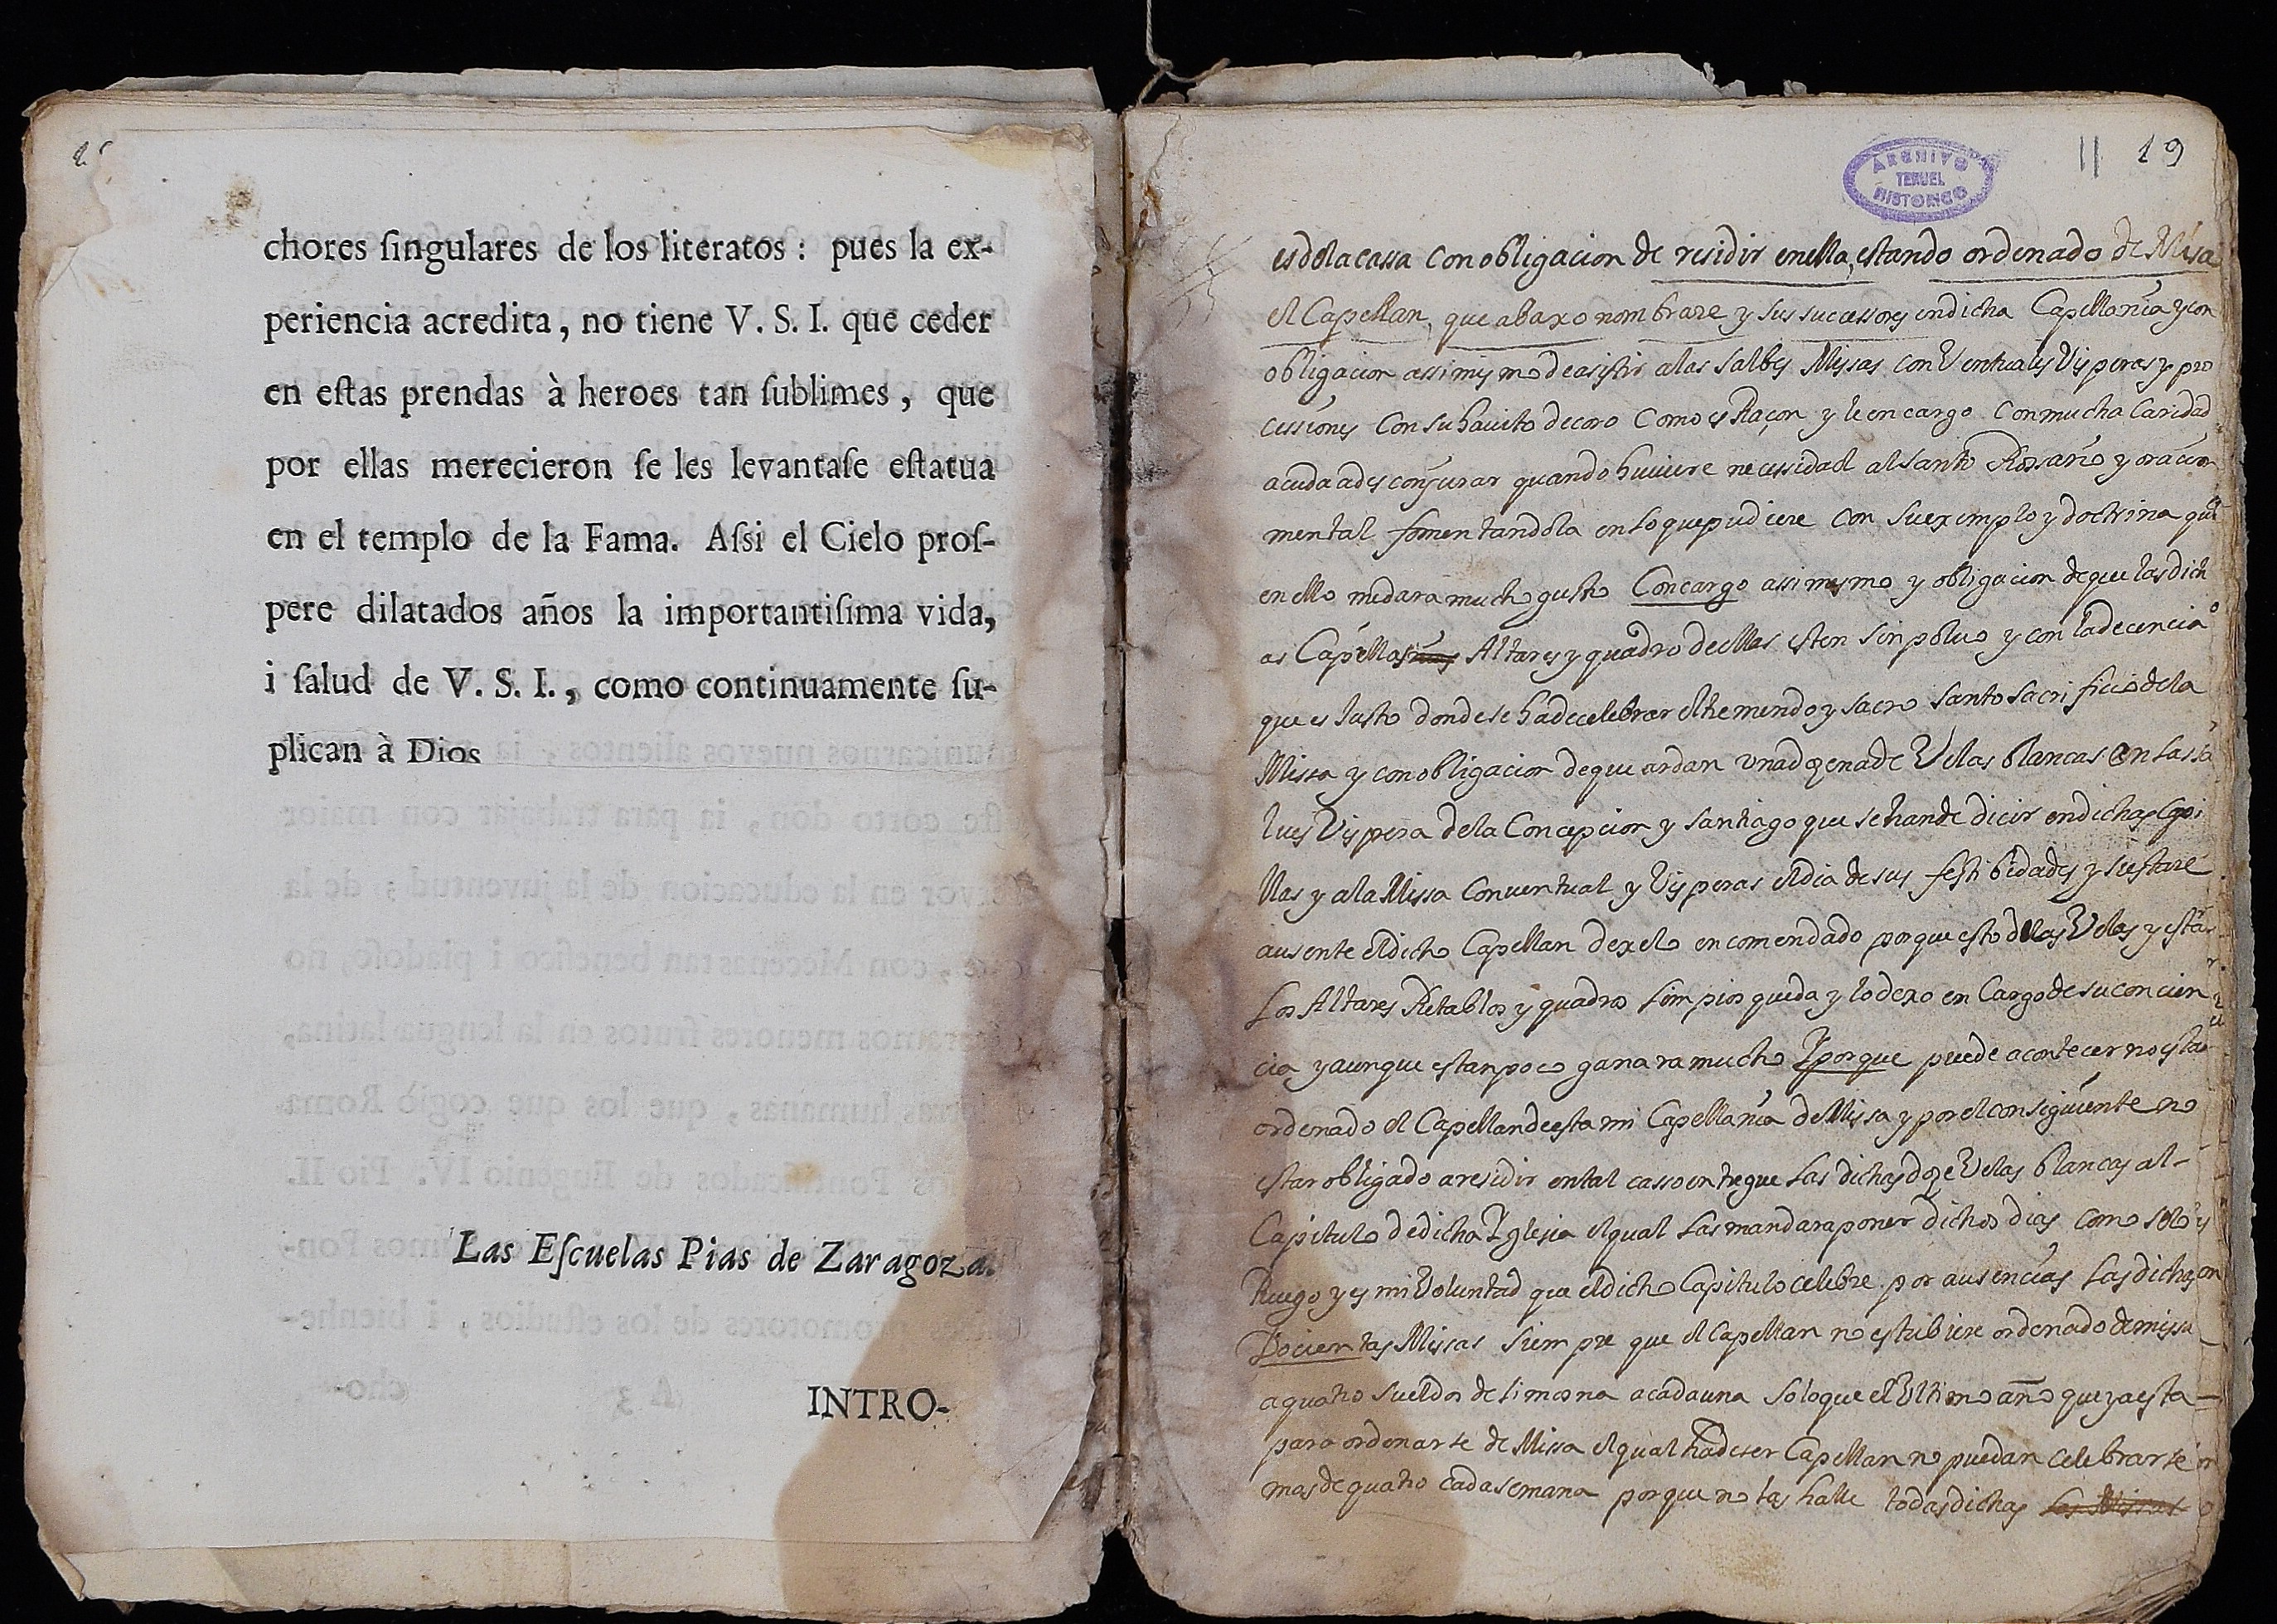 chores ſingulares de los literatos : pues la ex-
periencia acredita, no tiene V. S. I. que ceder
en eſtas prendas à heroes tan ſublimes, que
por ellas merecieron ſe les levantaſe eſtatua
en el templo de la Fama. Aſsi el Cielo proſ-
pere dilatados años la importantiſima vida,
i ſalud de V. S. I., como continuamente ſu-
plican à Dios
Las Eſcuelas Pias de Zaragoza.
INTRO-
ARCHIVO
TERUEL
HISTORICO
11 19
es dela cassa con obligacion de residir en ella, estando ordenado de Missa
el Capellan, que abaxo nombrare y sus successores en dicha Capellanía y con
obligacion assimismo de asistir a las salbes Missas conventuales Visperas y pro
cessiones con su hauito de coro como es Raçon y le encargo con mucha caridad
acuda a desconjurar quando huuiere necessidad al santo Rosario y oracion
mental fomentandola en lo que pudiere con su exemplo y doctrina que
en ello me dara mucho gusto Con cargo assimismo y obligacion de que las dich
as Capellas Altares y quadro de ellas esten sin poluo y con la decencia
que es Justo donde se ha de celebrar el tremendo y sacro santo sacrificio de la
Missa y con obligacion de que ardan vna dozena de Velas blancas en las sa
lues Vispera de la Concepcion y santiago que se han de dicir en dichas Cape
llas y a la Missa Conuentual y Visperas el dia de sus festibidades y si estare
ausente el dicho Capellan dexelo encomendado porque esto de las Velas y estar
los Altares Retablos y quadros limpios queda y lo dexo en Cargo de su concien
cia y aunque es tan poco ganara mucho Y porque puede acontecer no estar
ordenado el Capellan de esta mi Capellanía de Missa y por el consiguiente no
estar obligado a residir en tal casso entregue las dichas doze Velas blancas al
Capitulo de dicha Yglesia el qual las mandara poner dichos dias como se lo
Ruego y es mi Voluntad que el dicho Capitulo celebre por ausencias las dichas
Docientas Missas siempre que el Capellan no estubiere ordenado de missa
a quatro sueldos de limosna a cada una solo que el Vltimo año que ya esta
para ordenarse de Missa el qual ha de ser Capellan no puedan celebrarse
mas de quatro cada semana porque no las halle todas dichas las Missas